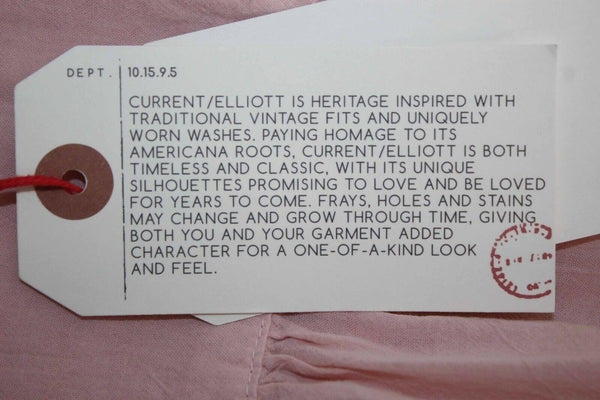 DEPT. 10.15.9.5
CURRENT/ELLIOTT IS HERITAGE INSPIRED WITH
TRADITIONAL VINTAGE FITS AND UNIQUELY
WORN WASHES. PAYING HOMAGE TO ITS
AMERICANA ROOTS, CURRENT/ELLIOTT IS BOTH
TIMELESS AND CLASSIC, WITH ITS UNIQUE
SILHOUETTES PROMISING TO LOVE AND BE LOVED
FOR YEARS TO COME. FRAYS, HOLES AND STAINS
MAY CHANGE AND GROW THROUGH TIME, GIVING
BOTH YOU AND YOUR GARMENT ADDED
CHARACTER FOR A ONE-OF-A-KIND LOOK
AND FEEL.